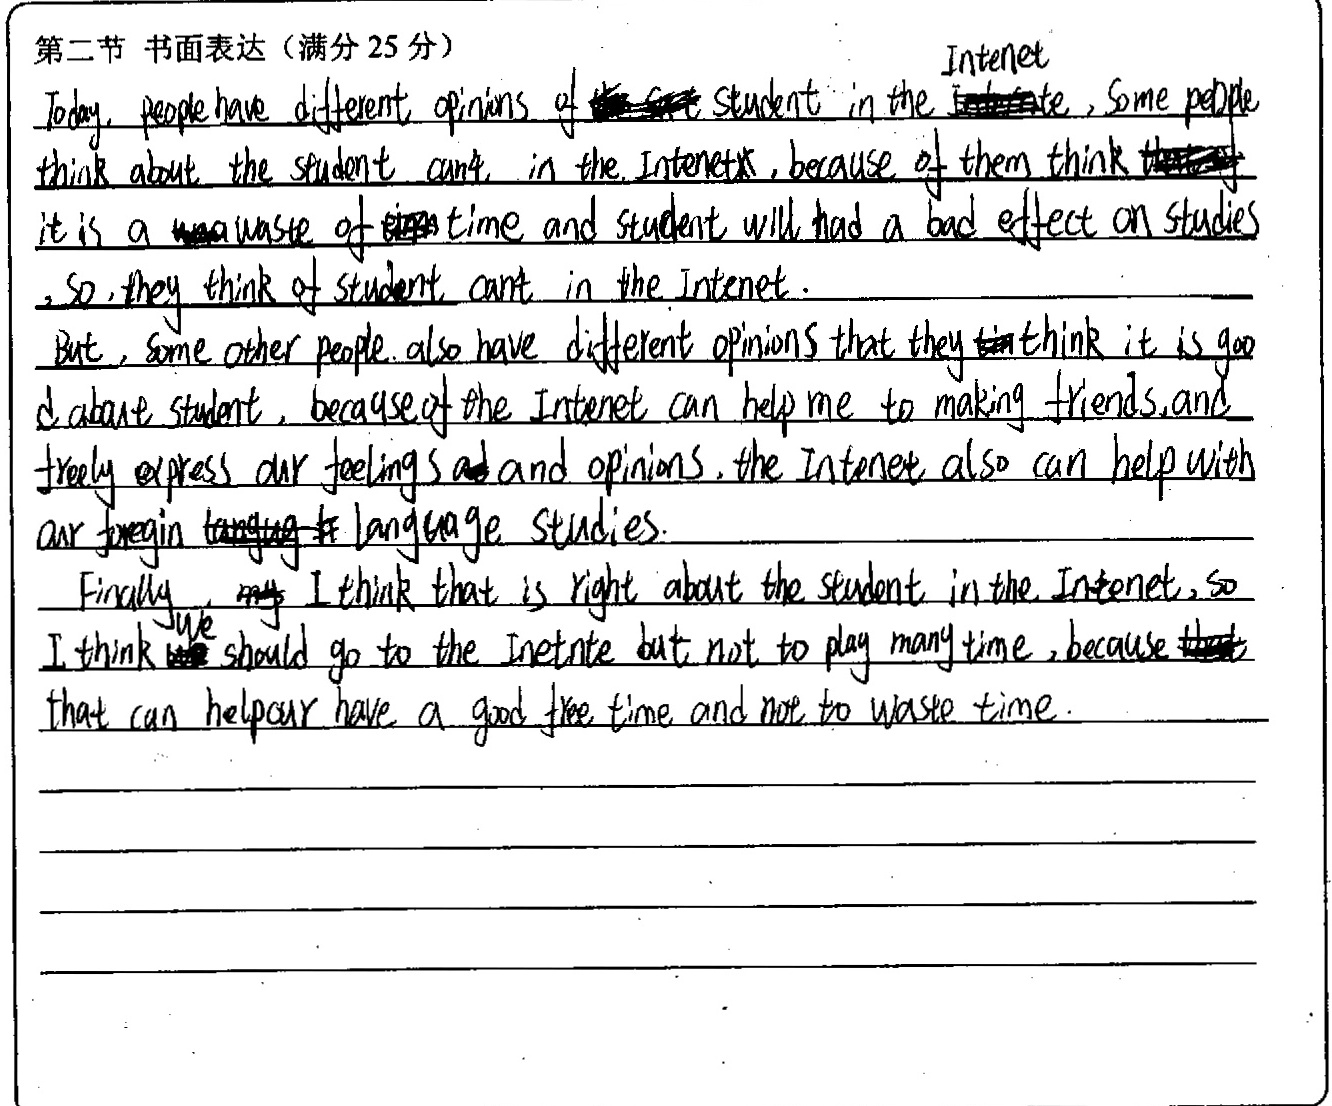 第二节 书面表达（满分 25 分）
Intenet
Today, people have different opinions of student in the , Some people
think about the student can't in the Intenet, because of them think
it is a waste of time and student will had a bad effect on studies
, so, they think of student can't in the Intenet.
But, some other people also have different opinions that they think it is goo
d about student, because of the Intenet can help me to making friends, and
freely express our feelings and opinions, the Intenet also can help with
our foregin language studies.
Finally, I think that is right about the student in the Intenet, so
we
I think should go to the Inetnte but not to play many time, because
that can help our have a good free time and not to waste time.